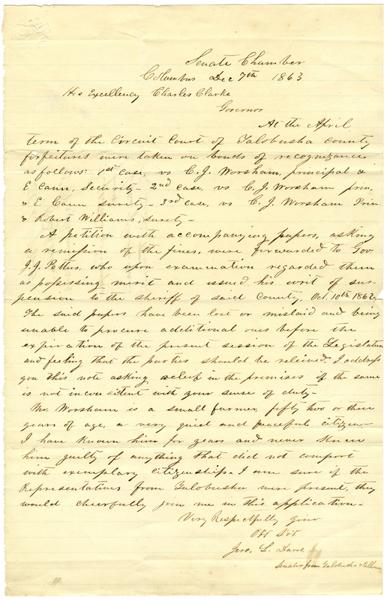 Senate Chamber
Columbus Dec 7th 1863
His Excellency Charles Clarke
Governor
At the April
term of the Circuit Court of Yalobusha County
forfeitures were taken on bonds of recognizance
as follows: 1st case, vs C. J. Worsham, principal &
E Cann, Security - 2nd case, vs C. J. Worsham prin.
& E. Cann surety - 3rd case, vs C. J. Worsham Prin
& Robert Williams, surety -
A petition with accompanying papers, asking
a remission of the fines, were forwarded to Gov
J.J. Pettus, who upon examination regarded them
as possessing merit and issued his writ of sus-
pension to the sheriff of said County, Oct 10th 1862.
The said papers have been lost or mislaid and being
unable to procure additional ones before the
expiration of the present session of the Legislature
and feeling that the parties should be relieved, I address
you this note asking relief in the premises if the same
is not inconsistent with your sense of duty -
Mr. Worsham is a small farmer, fifty two or three
years of age, a very quiet and peaceful citizen -
I have known him for years and never knew
him guilty of anything that did not comport
with exemplary citizenship - I am sure if the
Representatives from Yalobusha were present, they
would cheerfully join me in this application -
Very Respectfully your
Obt Svt
Senator from Yalobusha &